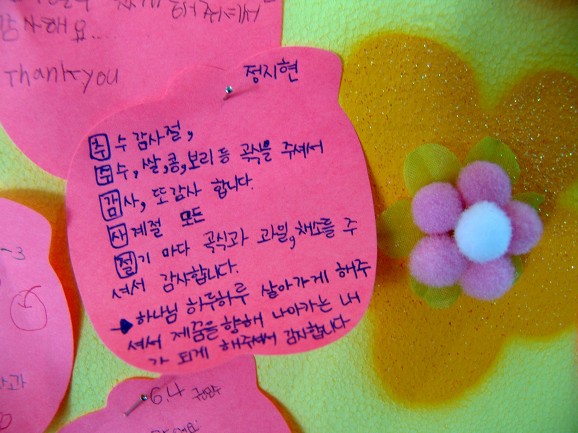 감사해요....
Thankyou
정지현
추수감사절,
수수, 쌀, 콩, 보리 등 곡식을 주셔서
감사, 또 감사 합니다.
사계절 모두
절기 마다 곡식과 과일, 채소를 주
셔서 감사합니다.
→ 하나님 하루하루 살아가게 해주
셔서 제 꿈을 향해 나아가는 내
가 되게 해주셔서 감사합니다
-3
6.4